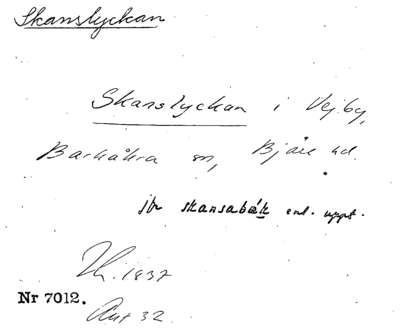 Skanslyckan
Skanslyckan i Vejby,
Barkåkra sn, Bjäre hd.
jfr skansabäk enl. uppt.
1837
Nr 7012.
32